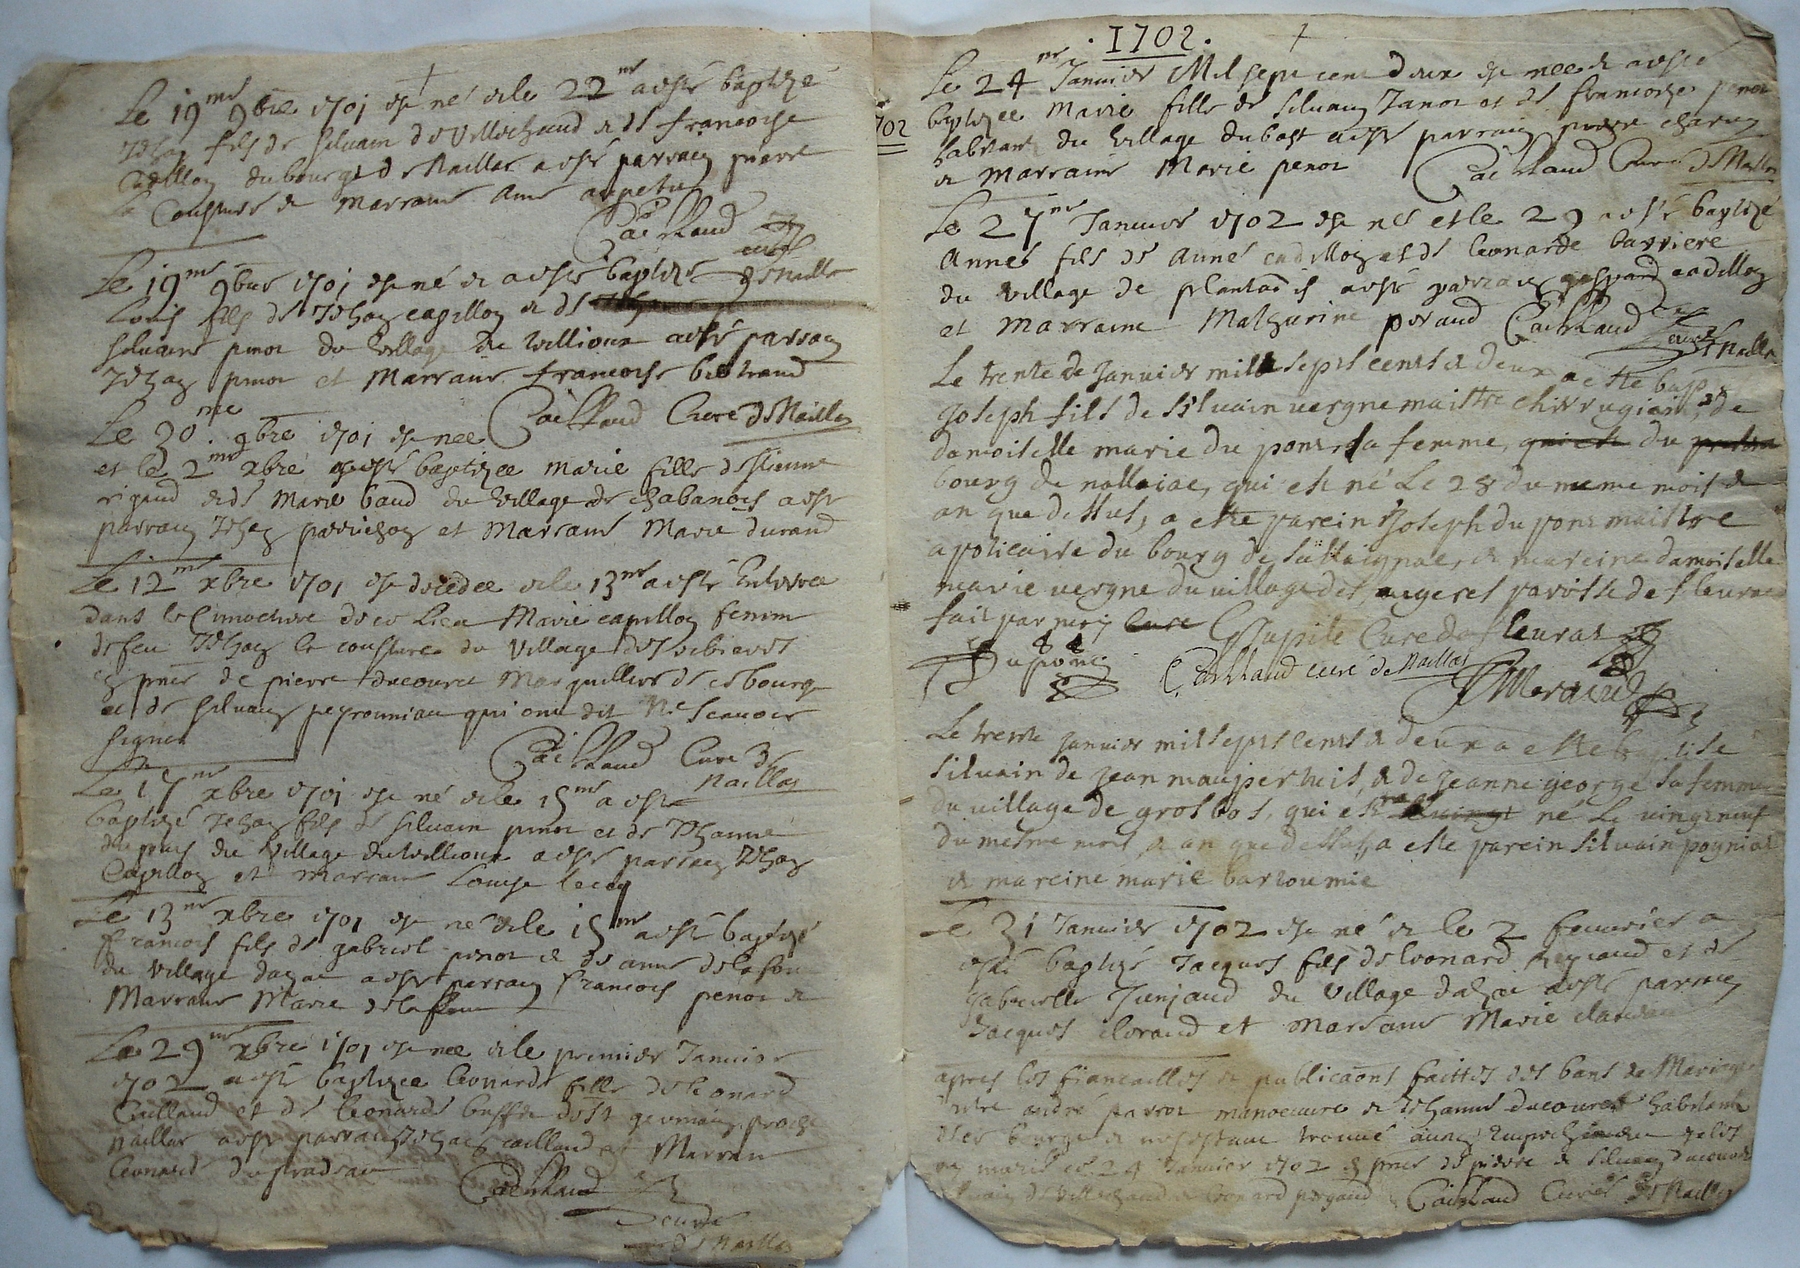 Le 19me 9bre 1701 est né et le 22me a esté baptizé
fils de silvain de Villechaud et de francoise
Cadillon du bourg de Naillac a esté parrain pierre
le Cousture et marraine Anne
Cailhaud
curé
de Naillac
Le 19me 9bre 1701 est né et a esté baptizé
Louis fils de Jehan capillon et de
silvaine pinot du village de villioux a esté parrain
Jehan pinot et Marraine francoise bertrand
Cailhaud Curé de Naillac
Le 30me 9bre 1701 est nee
et le 2me xbre a esté baptizee marie fille d'estienne
rigaud et de Marie baud du village de chabanois a esté
parrain Jehan et Marraine Marie durand
Le 12me xbre 1701 est decedee et le 13me a esté Enterree
dans le Cimetiere de ce Lieu Marie capillon femme
de feu Jehan le cousture du village des
En pnce de pierre ducouret Marguillier de ce bourg
et de silvain peyrouniau qui ont dit Ne scavoir
signer
Cailhaud Curé de
Naillac
Le 15me xbre 1701 est né et le 15me a esté
baptizé Jehan fils de silvain pinot et de Jehanne
du puis du village du villioux a esté parrain Jehan
Capillon et marraine Louise lecoq
Le 13me xbre 1701 est né et le 15me a esté baptizé
francois fils de gabriel penot et de anne delafon
du village dazac a esté parrain francois penot et
Marraine Marie delafon
Le 29me xbre 1701 est nee et le premier Janvier
1702 a esté baptizee leonarde fille de leonard
Caillaud et de leonarde de St germain proche
Naillac a esté parrain Jehan caillaud et Marraine
leonarde du pradeau
Cailhaud
curé
de Naillac
1702
· 1702 ·
Le 24me Janvier Mil sept cent deux est nee et a esté
baptizee Marie fille de silvain Janot et de francoise penot
habitant du village du bost a esté parrain pierre
et marraine Marie penot Cailhaud Curé de Naillac
Le 27me Janvier 1702 est né et le 29 a esté baptizé
Anné fils de Anné cadillon et de leonarde barriere
du village de plantadis a esté parrain gaspard cadillon
et marraine Mathurine peraud Cailhaud
curé de Naillac
Le trente de janvier mil sept cents et deux a esté baptisé
joseph fils de silvain vergne maistre chirrugiain, et de
damoiselle marie du pont sa femme, qui est du
bourg de nallaiac, qui est né Le 28 du meme mois et
an que dessus, a esté parein joseph du pont maistre
apoticaire du bourg de sallaignac, et mareine damoiselle
marie vergne du village des augeres paroisse de fleurac
fait par moy curé Gupile Curé de fleurat
Dupont Cailhaud curé de Naillac
Moraud
Le trente janvier mil sept cents et deux a esté baptisé
silvain de jean maupertuis, et de jeanne george sa femme
du village de grosbos, qui est né Le vingt neuf
du mesme mois et an que dessus, a esté parein silvain poyniat
et mareine marie bartoumie
Le 31 Janvier 1702 est né et le 2 feuvrier a
esté baptizé Jacques fils de leonard et de
gabrielle Junjaud du village dazac a esté parrain
Jacques et marraine Marie
apres les fiancailles et publications faittes des bans de Mariage
entre andré parrot manoeuvre et Jehanne ducouret habitants
de ce bourg et ne s'estant trouvé aucun Empechement je les
ay mariés ce 24 Janvier 1702 En pnce de pierre et silvain ducouret
silvain de villechaud et leonard Cailhaud Curé de Naillac